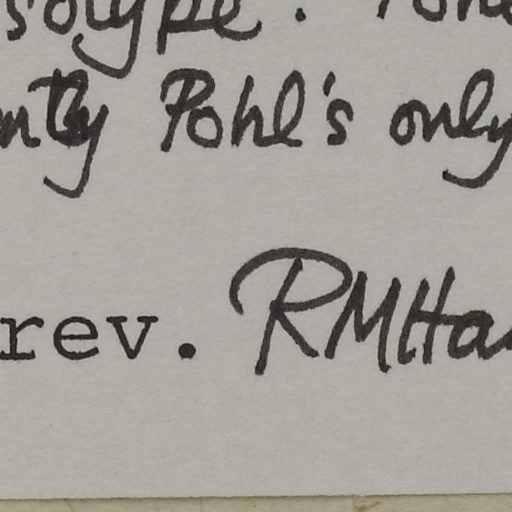 solype. Pohl
ntly Pohl's only
rev. RMHa